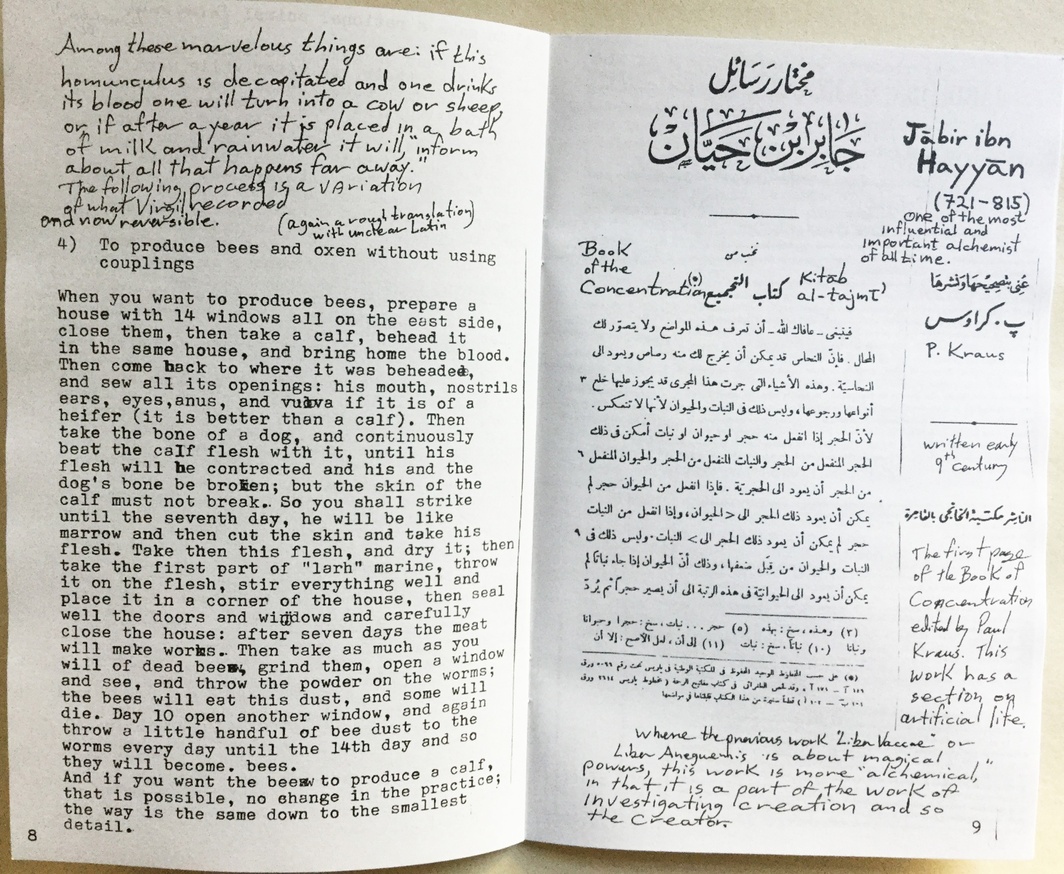 Among these marvelous things are: if this
homunculus is decapitated and one drinks
its blood one will turn into a cow or sheep,
or if after a year it is placed in a bath
of milk and rainwater it will inform
about all that happens far away."
The following process is a variation
of what Virgil recorded
and now reversible.
(again a rough translation
with unclear Latin)
4) To produce bees and oxen without using
couplings
When you want to produce bees, prepare a
house with 14 windows all on the east side,
close them, then take a calf, behead it
in the same house, and bring home the blood.
Then come back to where it was beheaded,
and sew all its openings: his mouth, nostrils
ears, eyes,anus, and vulva if it is of a
heifer (it is better than a calf). Then
take the bone of a dog, and continuously
beat the calf flesh with it, until his
flesh will be contracted and his and the
dog's bone be broken; but the skin of the
calf must not break. So you shall strike
until the seventh day, he will be like
marrow and then cut the skin and take his
flesh. Take then this flesh, and dry it; then
take the first part of "larh" marine, throw
it on the flesh, stir everything well and
place it in a corner of the house, then seal
well the doors and windows and carefully
close the house: after seven days the meat
will make worms. Then take as much as you
will of dead bees, grind them, open a window
and see, and throw the powder on the worms;
the bees will eat this dust, and some will
die. Day 10 open another window, and again
throw a little handful of bee dust to the
worms every day until the 14th day and so
they will become. bees.
And if you want the bees to produce a calf,
that is possible, no change in the practice;
the way is the same down to the smallest
detail.
8
مختار رَسَائِل
جَابِر ابْن حَيَّان
Jābir ibn
Hayyān
(721-815)
one of the most
influential and
important alchemist
of all time.
نخب من
Book
of the
Concentration
كتاب التجميع (٥)
Kitāb
al-tajmī'
عُنِيَ بِتَصْحِيحِهَا وَنَشْرِهَا
پ. كراوس
P. Kraus
written early
9th century
الناشر مكتبة الخانجى بالقاهرة
The first page
of the Book of
Concentration
edited by Paul
Kraus. This
work has a
section on
artificial life.
فينبغى – عافاك الله – أن تعرف هذه المواضع ولا يتصوّر لك
المحال. فإنّ النحاس قد يمكن أن يخرج لك منه رصاص ويعود الى
النحاسيّة. وهذه الأشياء التى جرت هذا المجرى قد يجوز عليها خلع ٣
أنواعها ورجوعها، وليس ذلك فى النبات والحيوان لأنّها لا تنعكس.
لأنّ الحجر إذا انفعل منه حجر او حيوان او نبات أمكن فى ذلك
الحجر المنفعل من الحجر والنبات المنفعل من الحجر والحيوان المنفعل ٦
من الحجر أن يعود الى الحجريّة. فإذا انفعل من الحيوان حجر لم
يمكن أن يعود ذلك الحجر الى <الحيوان، وإذا انفعل من النبات
حجر لم يمكن أن يعود ذلك الحجر الى> النبات. وليس ذلك فى ٩
النبات والحيوان من قِبَل ضعفها، وذلك أنّ الحيوان إذا جاء نباتًا لم
يمكن أن يعود الى الحيوانيّة فى هذه الرتبة الى أن يصير حجراً ثم يُردّ
(٣) وهذه، سخ: بهذه (٥) حجر ... نبات، سخ: حجرا وحيوانا
ونباتا (١٠) نباتًا، سخ: نبات (١١) الى أن، لعل الأصح: إلا أن
where the previous work "Liber Vaccae" or
Liber Aneguemis is about magical
powers, this work is more "alchemical"
in that it is a part of the work of
investigating creation and so
the Creator.
9